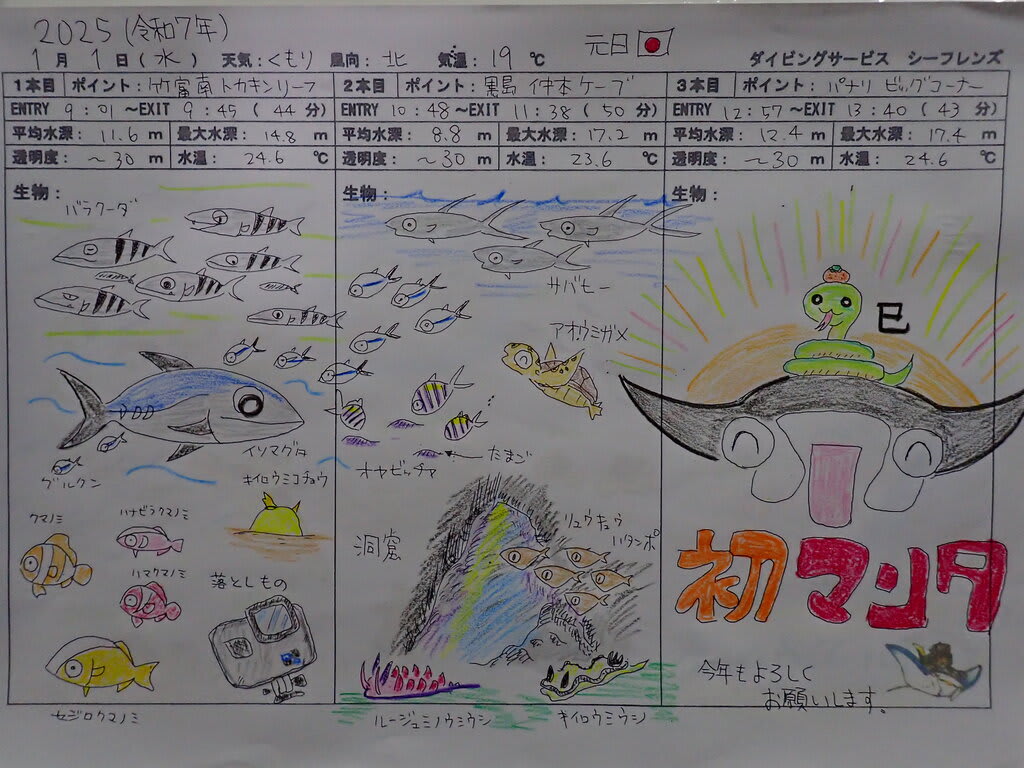 2025 (令和7年)
1月 1日(水) 天気:くもり 風向:北 気温:19℃ 元日 ダイビングサービス シーフレンズ
1本目 ポイント:竹富南トカキンリーフ
ENTRY 9:01~EXIT 9:45(44分)
平均水深:11.6m 最大水深:14.8m
透明度:~30m 水温:24.6℃
生物:
バラクーダ
イソマグロ
グルクン
キイロウミコチョウ
クマノミ
ハナビラクマノミ
ハマクマノミ
落としもの
セジロクマノミ
2本目 ポイント:黒島 仲本ケーブ
ENTRY 10:48~EXIT 11:38(50分)
平均水深:8.8m 最大水深:17.2m
透明度:~30m 水温:23.6℃
生物:
サバヒー
アオウミガメ
たまご
オヤビッチャ
洞窟
リュウキュウ
ハタンポ
ルージュミノウミウシ
キイロウミウシ
3本目 ポイント:パナリ ビッグコーナー
ENTRY 12:57~EXIT 13:40(43分)
平均水深:12.4m 最大水深:17.4m
透明度:~30m 水温:24.6℃
生物:
巳
初マンタ
今年もよろしく
お願いします。